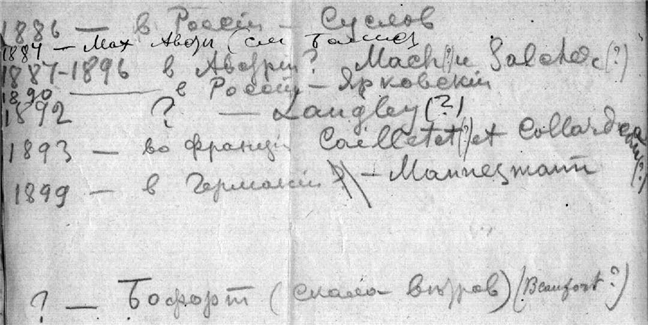 1886 — в Россіи — Суслов
1887 — Мах Австрія (см
1887-1896 в Австріи? Mach(?) u Salcher(?)
1890 — в Россіи — Ярковскій
1892 ? — Langley (?)
1893 — во Франціи Cailletet(?) et Collardeau(?)
1899 — в Германіи ? — Mannesmann
? — Бофорт (скала вѣтров) (Beaufort?)